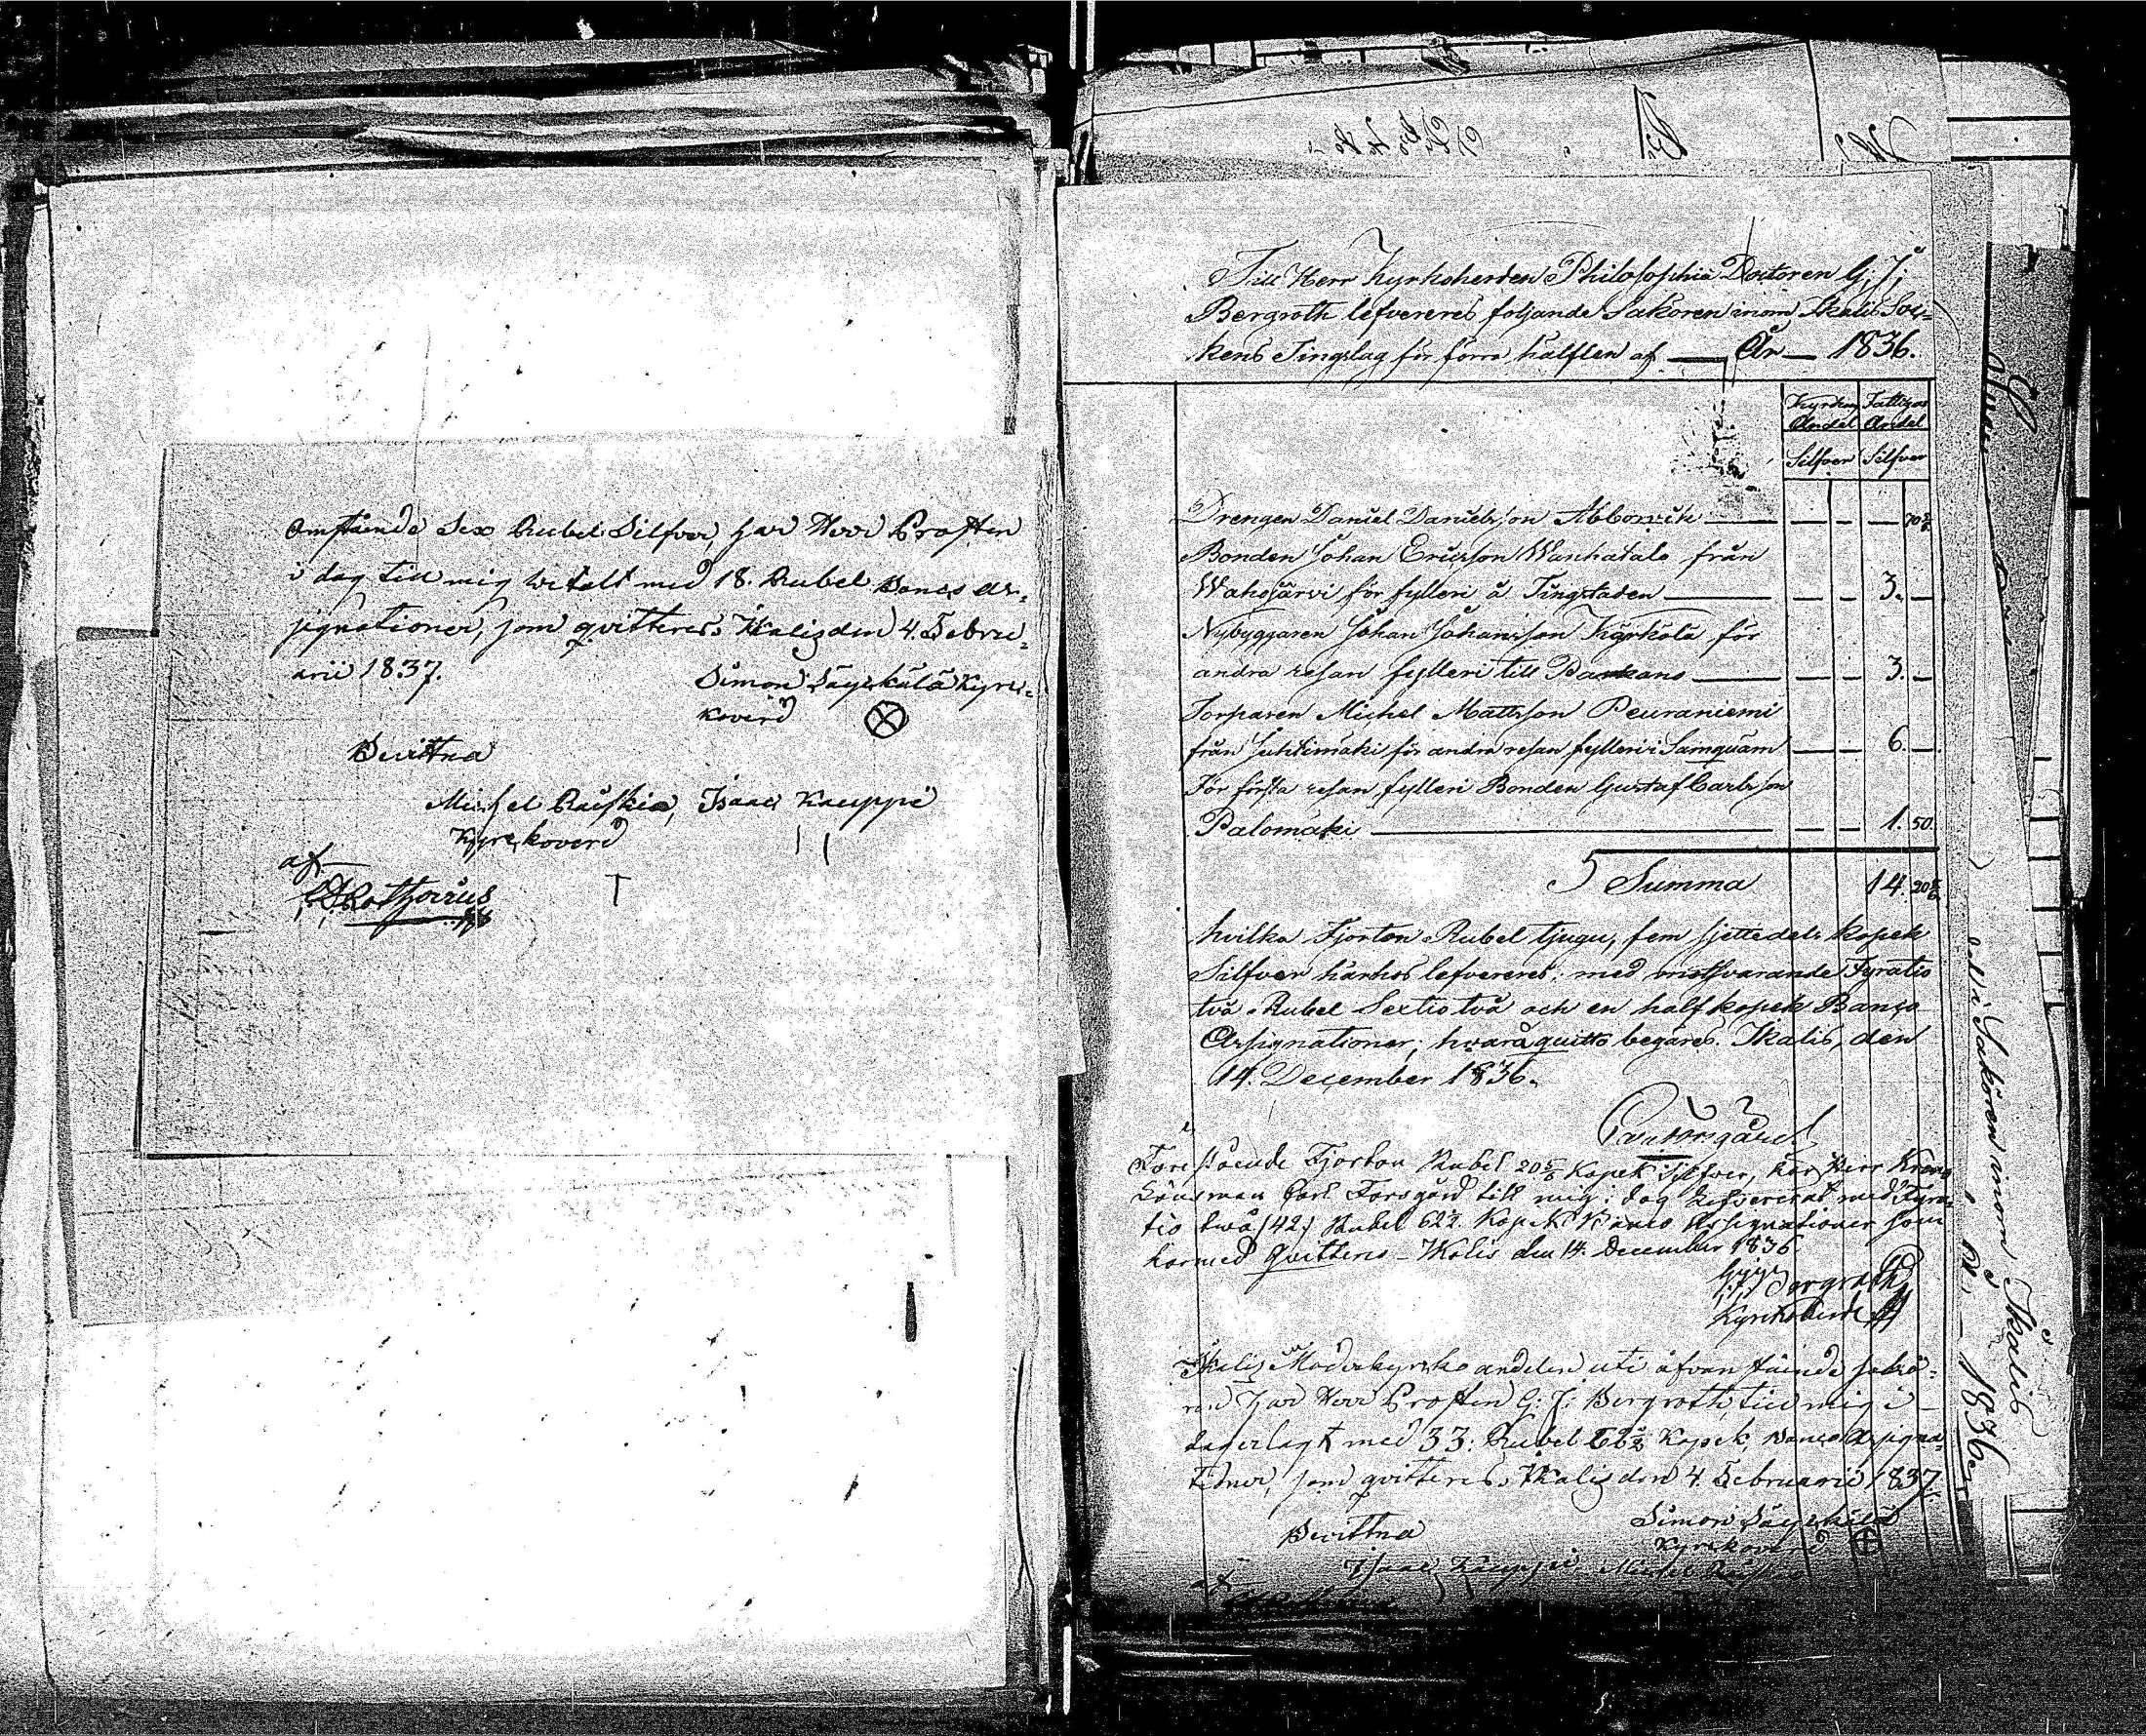 Omstående Sex Rubel Silfver, har Herr Prosten
i dag till mig betalt med 18. Rubel Banco As-
signationer, som qvitteras. Ikalis den 4. Febru-
arii 1837.
Simon Säyskälä Kyrc-
koverd
Bevittna
Michel Raiskia, Isaac Kauppi
Kyrckoverd
af
Till Herr Kyrkoherden Philosophiæ Doctoren G; J;
Bergroth lefvereres följande Sakören inom Ikalis Soc-
kens Tingslag för förra hälften af — År — 1836.
Kyrkans Fattigas
Andel Andel
Silfver Silfver
Drengen Daniel Danielsson Abborvik — — — — 70 5/6
Bonden Johan Ericsson Wanhatalo från
Wahojärvi för fylleri å Tingstaden — — — 3. —
Nybyggaren Johan Johansson Kärkölä för
andra resan fylleri till Parkano — — — 3. —
Torparen Michel Mattsson Peuraniemi
från Juhtimäki för andra resan fylleri i Samquäm — — 6. —
För första resan fylleri Bonden Gustaf Carlsson
Palomäki — — — 1. 50.
Summa 14. 20 5/6
hvilka Fjorton Rubel tjugu, fem sjettedels kopek
Silfver härhos lefvereres; med motsvarande Fyratio
två Rubel Sextio två och en half kopek Banco
Assignationer; hvarå quitto begäres. Ikalis, den
14. December 1836.
Carl Forsgård
Förestående Fjorton Rubel 20 5/6 Kopek Silfver, har Herr Krono
Länsman Carl Forsgård till mig i dag lefvererat med Fyra-
tio twå (42) Rubel 62 1/2 Kopek Banco Assignationer som
härmed Qvitteras – Ikalis den 14 December 1836
G; J; Bergroth
Kyrkoherde
Ikalis Moderkyrko andelen uti ofvanstående sakö-
ren har Herr Prosten G: J: Bergroth till mig i
dag erlagt med 33: Rubel 66 1/2 Kopek, Banco Assigna-
tioner, som qvitteras. Ikalis den 4. Februarii 1837.
Simon Säyskälä
Bevittna
Kyrckoverd
Isaac Kauppi Michel Raiskia
af
Saköre inom Ikalis
År — 1836